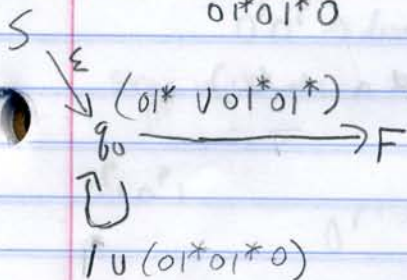 01*01*0
S
ε
(01* ∪ 01*01*)
q₀ → F
1 ∪ (01*01*0)